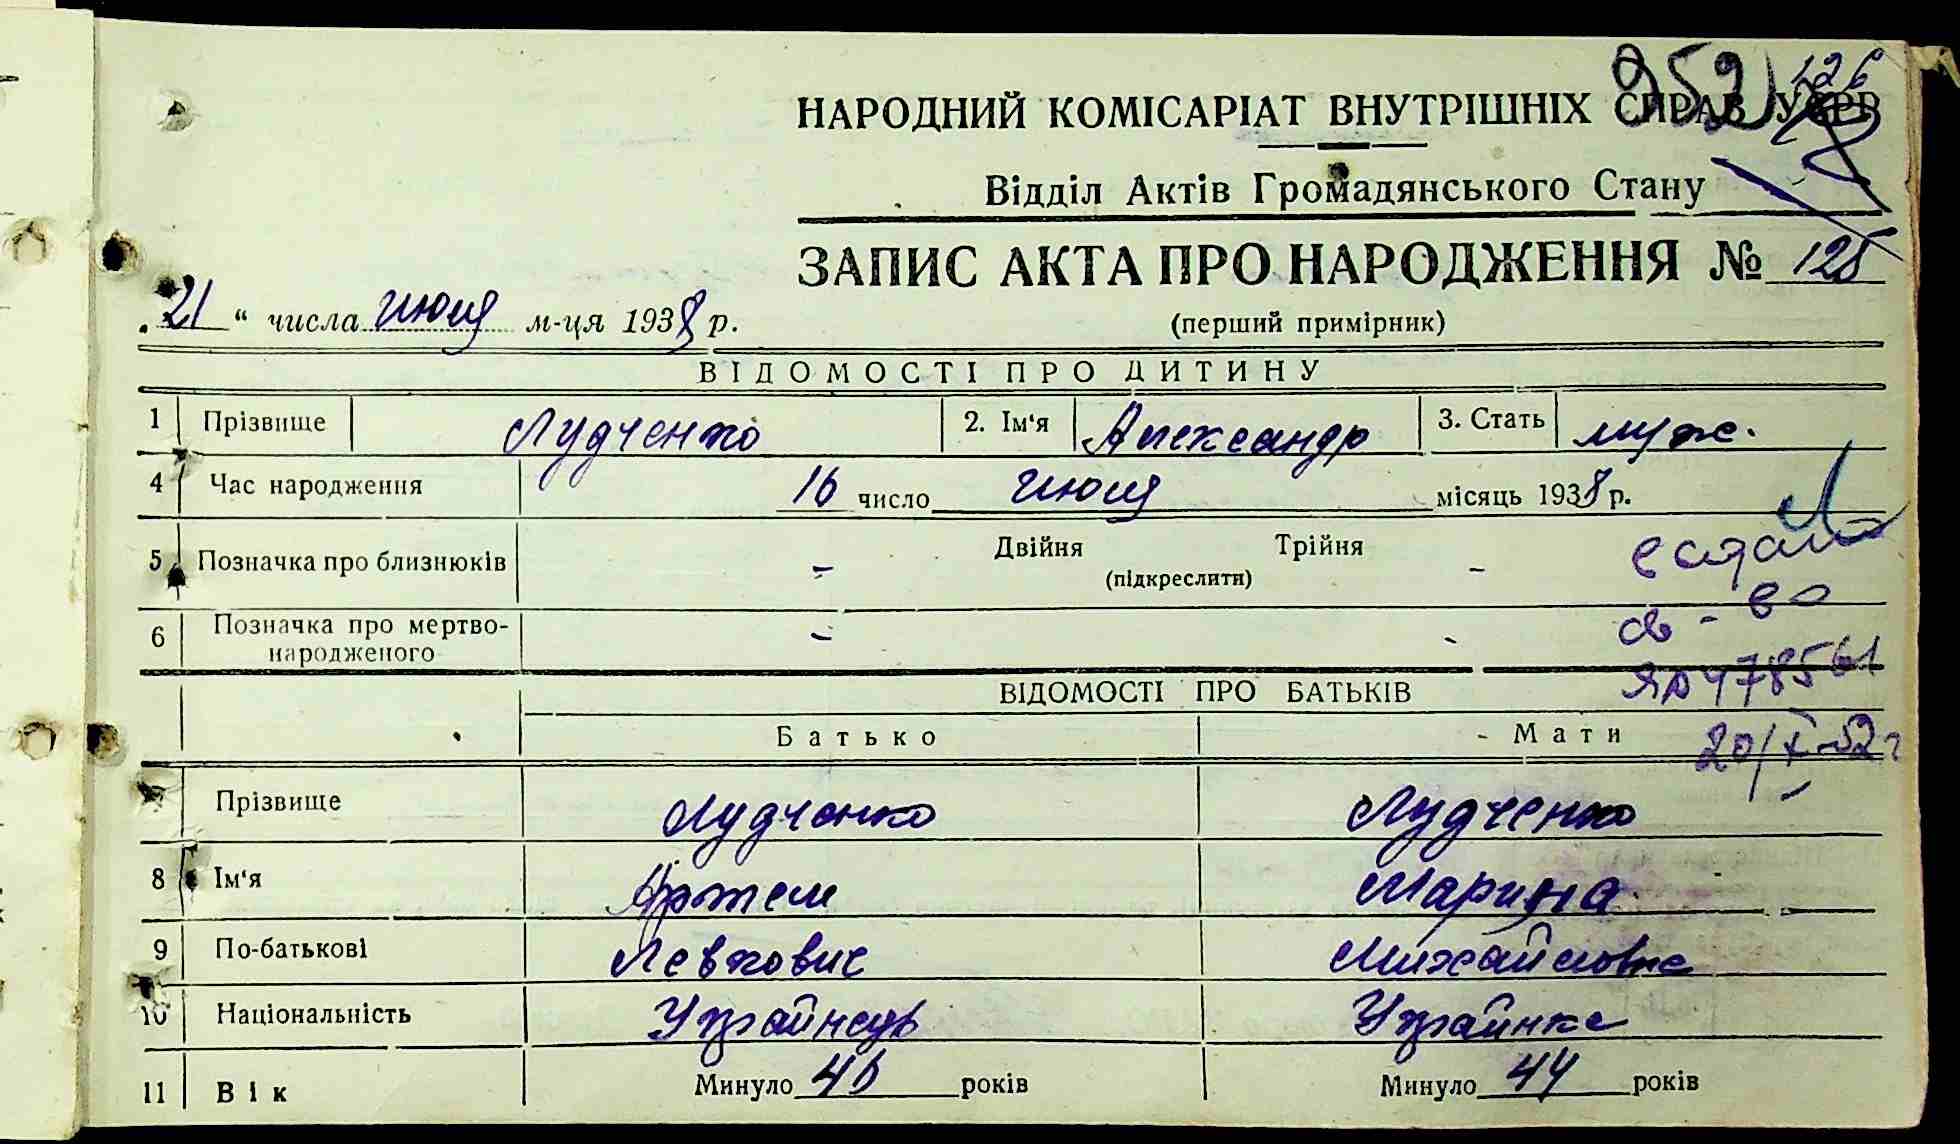 952 126
НАРОДНИЙ КОМІСАРІАТ ВНУТРІШНІХ СПРАВ УСРР
Відділ Актів Громадянського Стану
ЗАПИС АКТА ПРО НАРОДЖЕННЯ № 125
„21“ числа июля м-ця 1938 р.
(перший примірник)
ВІДОМОСТІ ПРО ДИТИНУ
1 Прізвище Лудченко 2. Ім'я Александр 3. Стать муж.
4 Час народження 16 число июля місяць 1938 р.
5 Позначка про близнюків - Двійня Трійня -
(підкреслити)
6 Позначка про мертво-
народженого - -
св-во
ЯР 478561
20/X-52 г
ВІДОМОСТІ ПРО БАТЬКІВ
Батько Мати
7 Прізвище Лудченко Лудченко
8 Ім'я Артем Марина
9 По-батькові Левкович Михайловна
10 Національність Украйнець Украинка
11 Вік Минуло років Минуло 44 років